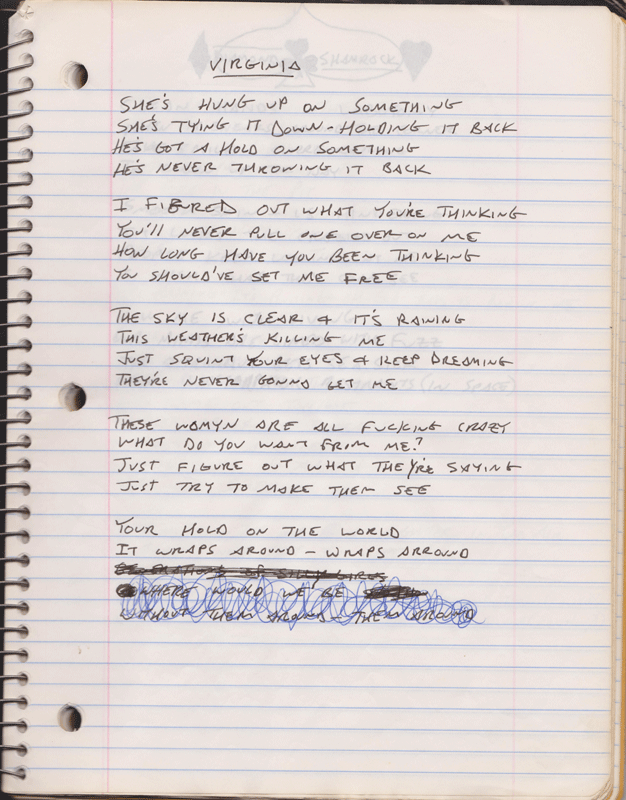 VIRGINIA
SHE'S HUNG UP ON SOMETHING
SHE'S TYING IT DOWN - HOLDING IT BACK
HE'S GOT A HOLD ON SOMETHING
HE'S NEVER THROWING IT BACK
I FIGURED OUT WHAT YOU'RE THINKING
YOU'LL NEVER PULL ONE OVER ON ME
HOW LONG HAVE YOU BEEN THINKING
YOU SHOULD'VE SET ME FREE
THE SKY IS CLEAR & IT'S RAINING
THIS WEATHER'S KILLING ME
JUST SQUINT YOUR EYES & KEEP DREAMING
THEY'RE NEVER GONNA GET ME
THESE WOMYN ARE ALL FUCKING CRAZY
WHAT DO YOU WANT FROM ME?
JUST FIGURE OUT WHAT THEY'RE SAYING
JUST TRY TO MAKE THEM SEE
YOUR HOLD ON THE WORLD
IT WRAPS AROUND - WRAPS ARROUND
OF
WHERE WOULD WE BE
WITHOUT THEM AROUND - THEM AROUND
SHAMROCK
FUZZ
(IN SPACE)